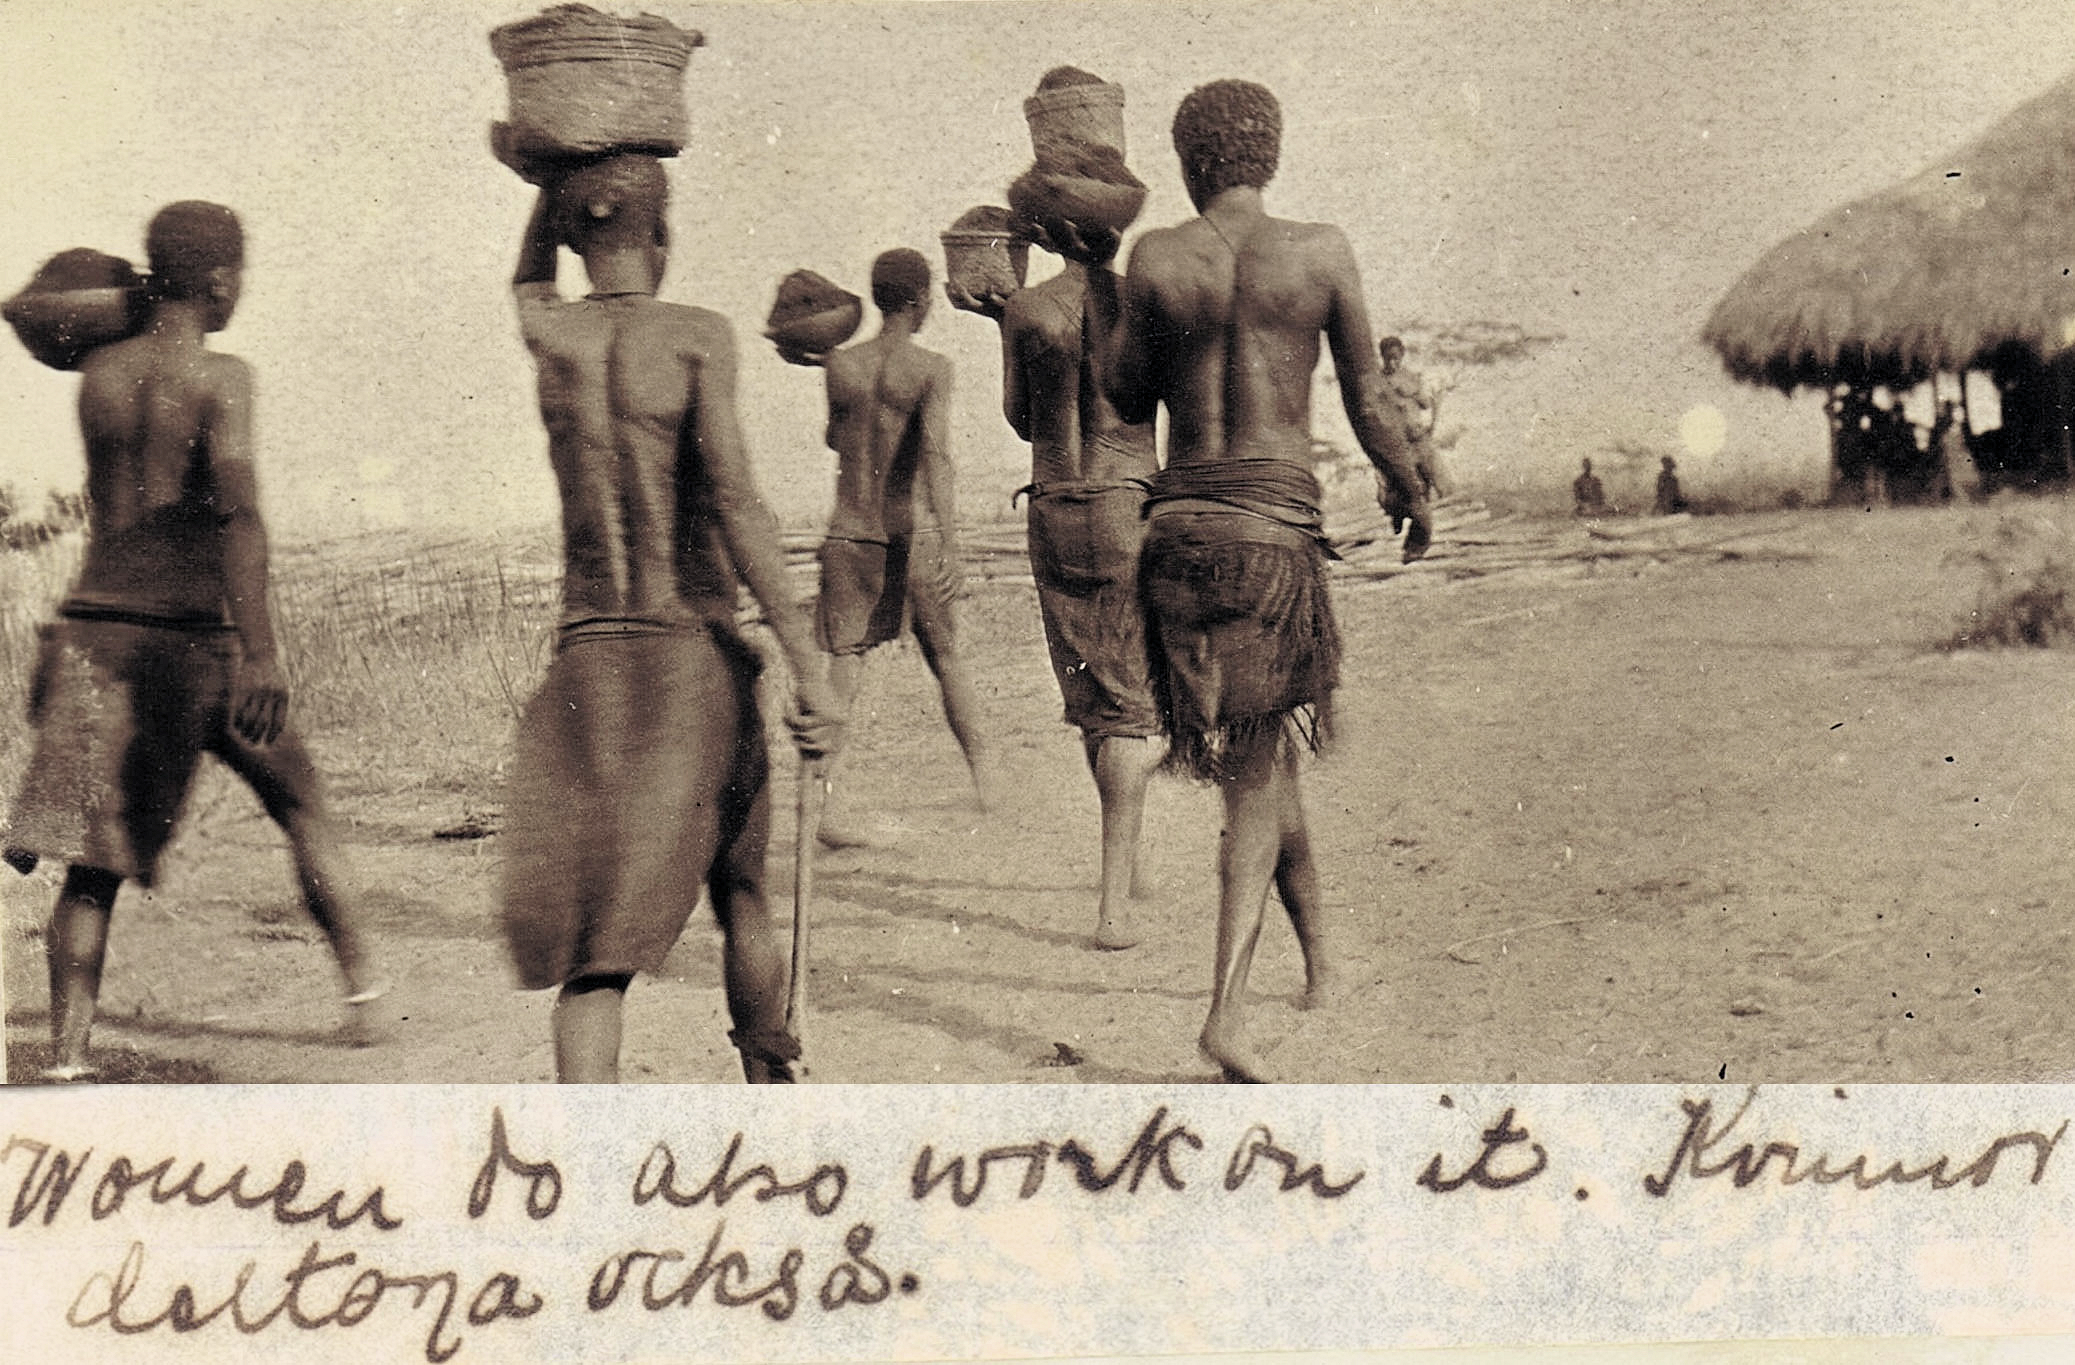 Women do also work on it. Kvinnor
deltaga också.